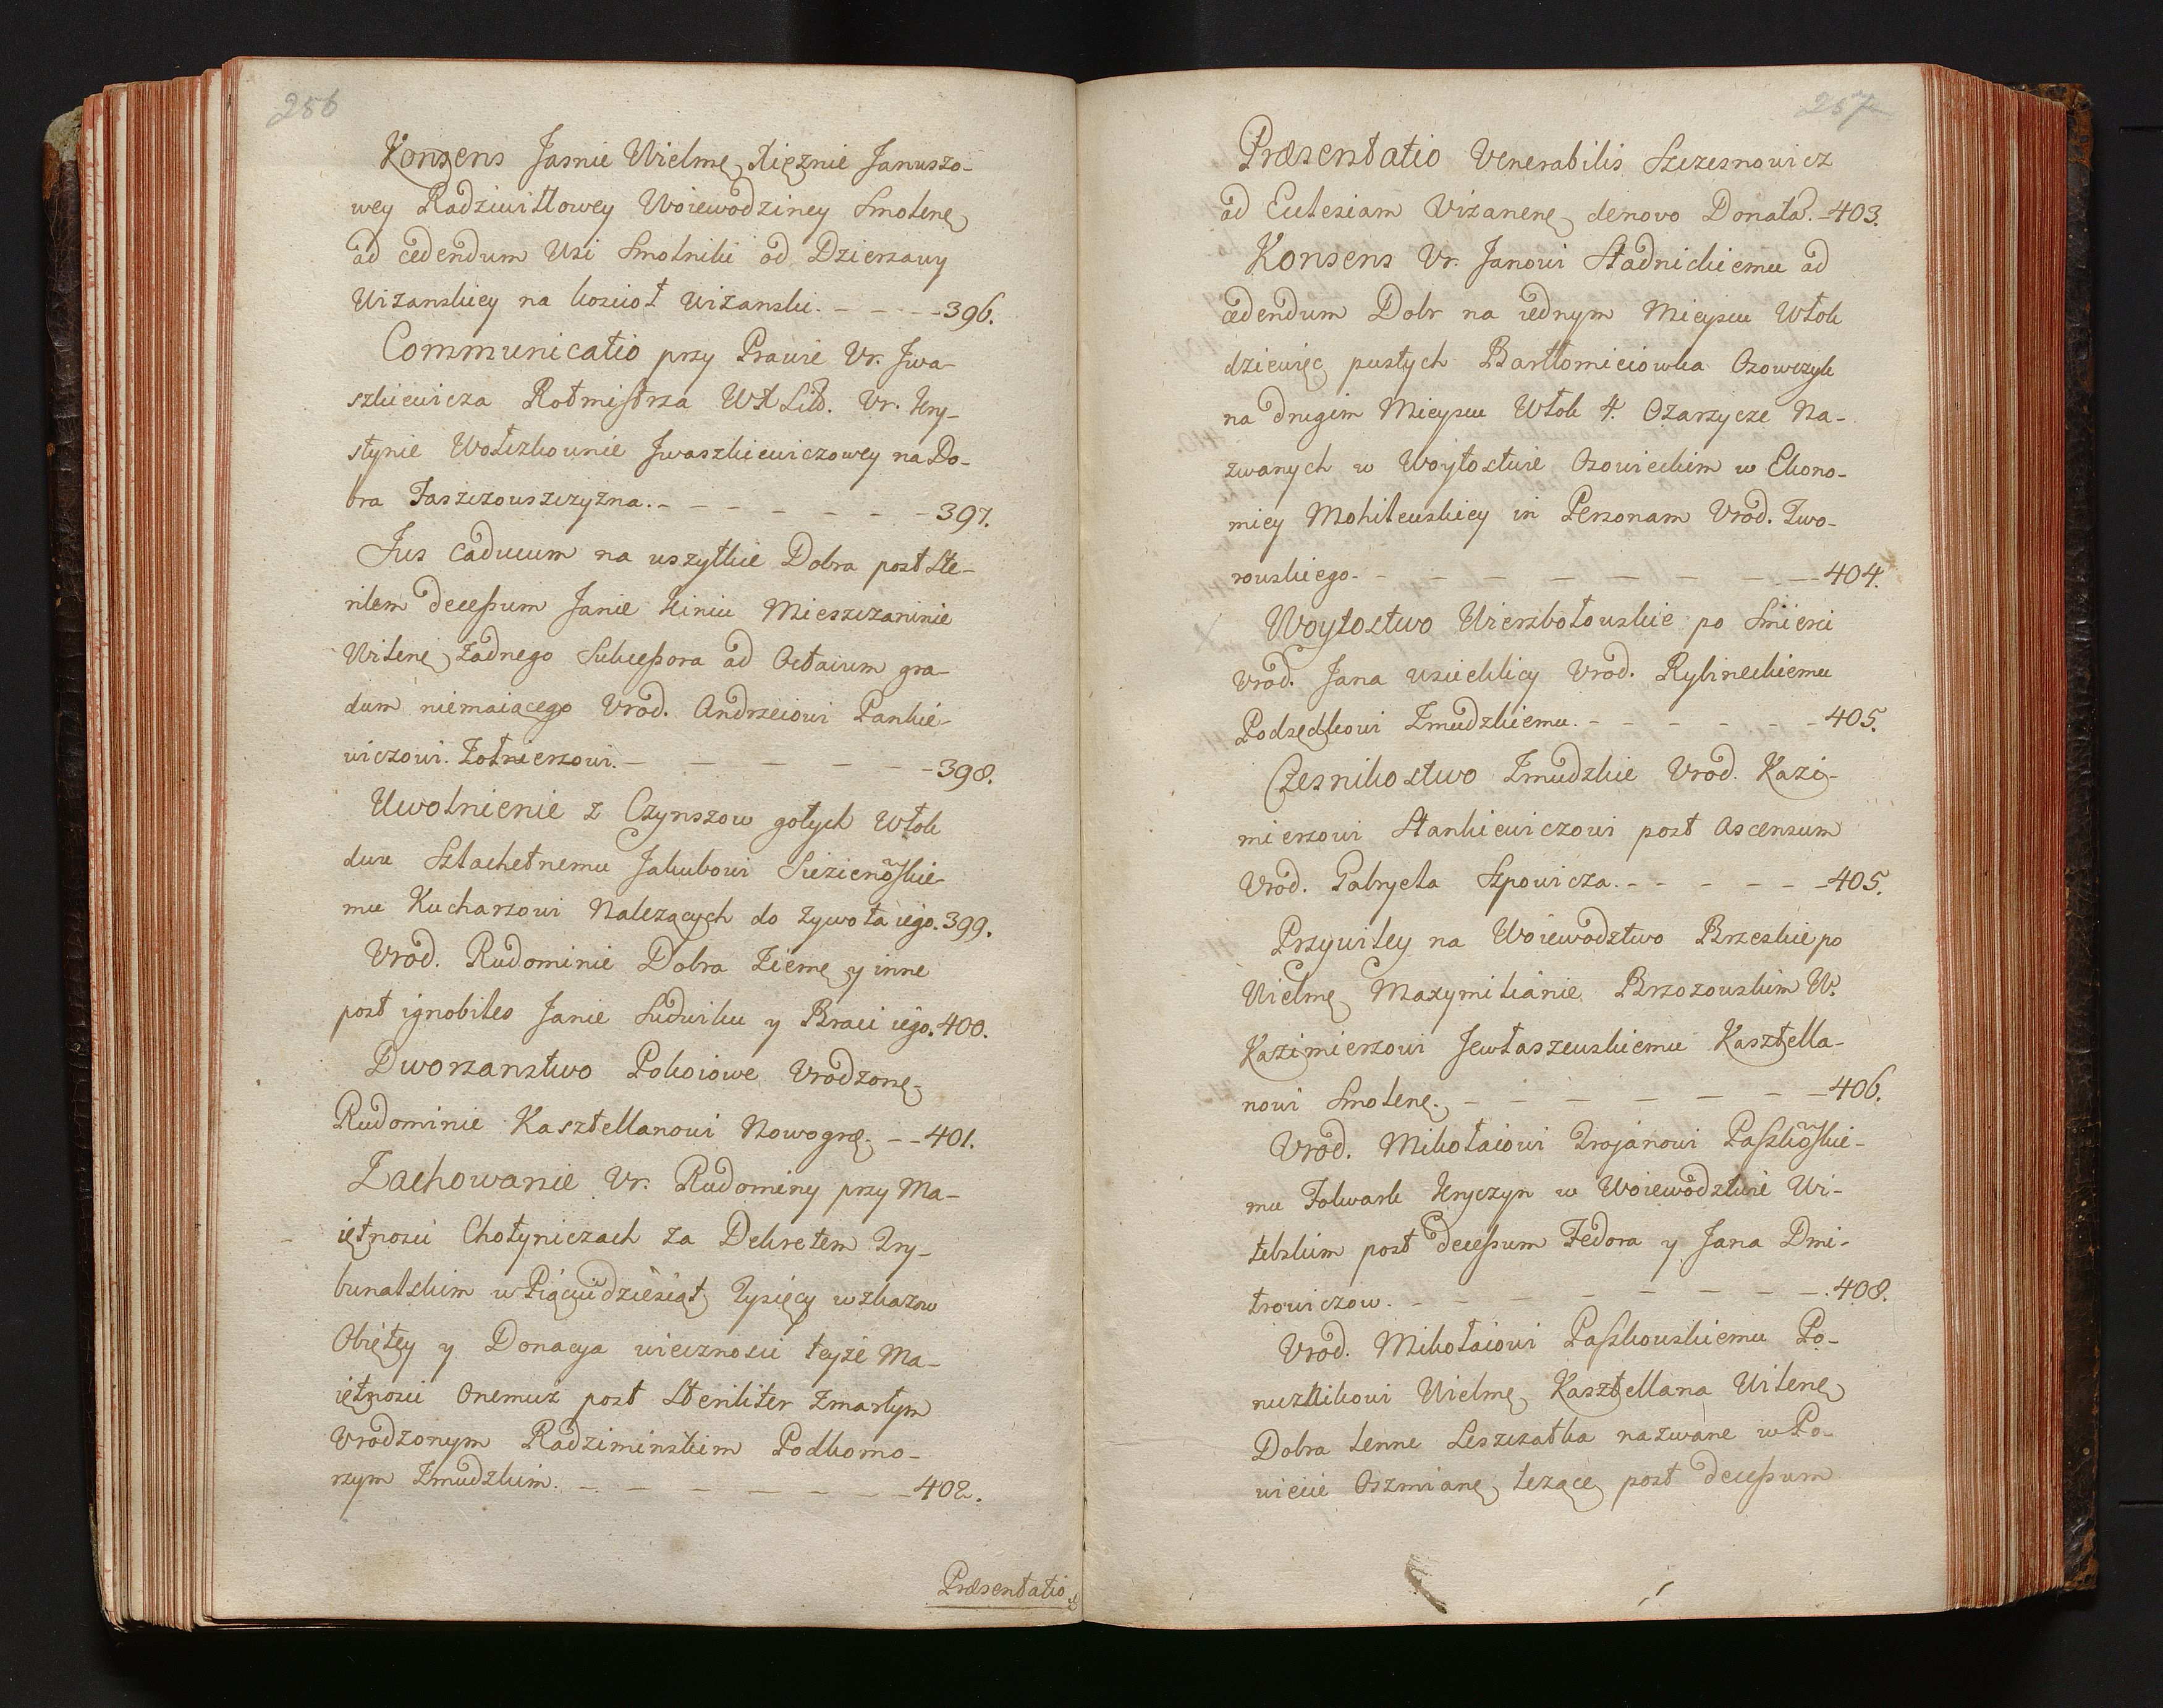 286
Konsens Jasnie Wielmę Xięznie Januszo-
wey Radziwiłłowey Woiewodziney Smolenę
ad cedendum Wsi Smolniki od Dzierzawy
Wizanskiey na koscioł Wizanski. - - - - 396.
Communicatio przy Prawie Vr. Jwa-
szkiewicza Rotmistrza WXLitt. Vr. Kry-
stynie Wołczkownie Jwaszkiewiczowey na Do-
bra Taszczowszczyzna. - - - - - - - 397.
Jus caducum na wszytkie Dobra post Ste-
rilem decessum Janie Kiniu Mieszczaninie
Wilenę Zadnego Sukcessora ad Octavum gra-
dum niemaiącego Vrod. Andrzeiowi Pankie-
wiczowi Zołnierzowi. - - - - - - 398.
Uwolnienie z Czynszow gołych Włok
dwu Szlachetnemu Jakubowi Siezienoskie-
mu Kucharzowi Nalezących do Zywota iego. 399.
Vrod. Rudominie Dobra Ziemę y inne
post ignobiles Janie Ludwiku y Braci iego. 400.
Dworzanstwo Pokoiowe Vrodzonę
Rudominie Kasztellanowi Nowogrę. - - 401.
Zachowanie Vr. Rudominy przy Ma-
iętnosci Chotyniczach za Dekretem Try-
bunalskim w Piąciudziesiąt Tysięcy wskazow
Obiętey y Donacya wiecznosci teyze Ma-
iętnosci Onemuz post Steriliter Zmarłym
Vrodzonym Radziminskim Podkomo-
rzym Zmudzkim. - - - - - - - 402.
Præsentatio
257
Præsentatio Venerabilis Szczesnowicz
ad Eclesiam Vizanenę denovo Donata. - 403.
Konsens Vr. Janowi Stadnickiemu ad
cedendum Dobr na iednym Mieyscu Włok
dziewięc pustych Bartłomieiowka Ozowczyk
na drugim Mieyscu Włok 4. Ozarzycze Na-
zwanych w Woytostwie Ozowieckim w Ekono-
miey Mohilewskiey in Personam Vrod. Two-
rowskiego. - - - - - - - - 404.
Woytostwo Wierzbołowskie po Smierci
Vrod. Jana Wsieklicy Vrod. Rybinskiemu
Podsędkowi Zmudzkiemu. - - - - - - 405.
Czesnikostwo Zmudzkie Vrod. Kazi-
mierzowi Stankiewiczowi post Ascensum
Vrod. Gabryela Szpowicza. - - - - - - 405.
Przywiley na Woiewodztwo Brzeskie po
Wielmę Maxymilianie Brzozowskim W.
Kazimierzowi Jewłaszewskiemu Kasztella-
nowi Smolenę. - - - - - - - 406.
Vrod. Mikołaiowi Trojanowi Paszkoskie-
mu Folwark Hryczyn w Woiewodztwie Wi-
tebskim post decessum Fedora y Jana Dmi-
trowiczow. - - - - - - - - 408.
Vrod. Mikołaiowi Paszkowskiemu Po-
rucznikowi Wielmę Kasztellana Wilenę
Dobra Lenne Leszczatka nazwane w Po-
wiecie Oszmianę lezące post decessum